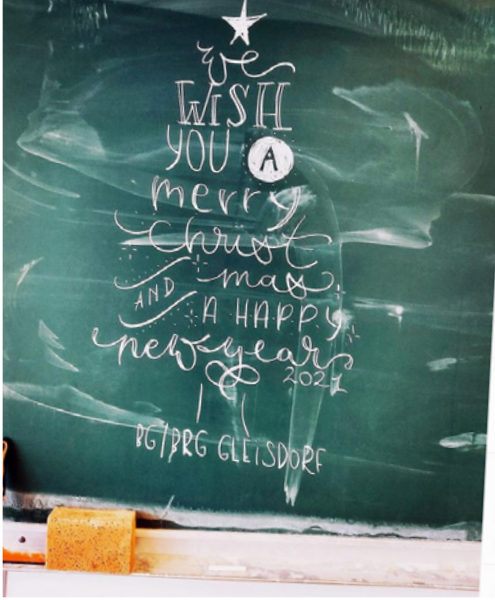 we
WISH
YOU A
merry
christ
mas
AND A HAPPY
new year
2021
BG/BRG GLEISDORF